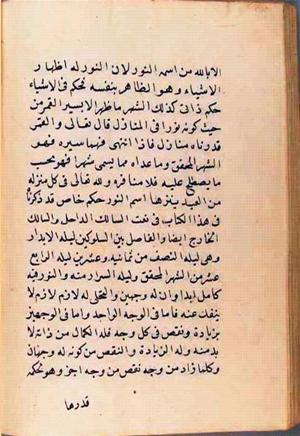 الا بالله من اسمه النور لان النور له اظهار
الاشياء وهو الظاهر بنفسه فحكم في الاشياء
حكم ذاتي كذلك الشهر ما ظهر الا بسير القمر من
حيث كونه نورا في المنازل قال تعالى والقمر
قدرناه منازل فاذا انتهى فيها سيره فهو
الشهر المحقق وما عداه مما يسمى شهرا فهو بحسب
ما يصطلح عليه فلا منافرة ولله تعالى في كل منزلة
من العبد ينزلها اسم النور حكم خاص قد ذكرناه
في هذا الكتاب في نعت السالك الداخل والسالك
الخارج ايضا والفاصل بين السلوكين ليلة الابدار
وهي ليلة النصف من ثمانية وعشرين ليلة الرابع
عشر من الشهر المحقق وليلة السرار منه والنور فيه
كامل ابدا وان له وجهين والتجلي له لازم لازم لا
ينفك عنه فاما في الوجه الواحد واما في الوجهين
بزيادة ونقص في كل وجه فله الكمال من ذاته لا
بد منه وله الزيادة والنقص من كونه له وجهان
وكلما زاد من وجه نقص من وجه اخر وهو لحكمة
قدرها